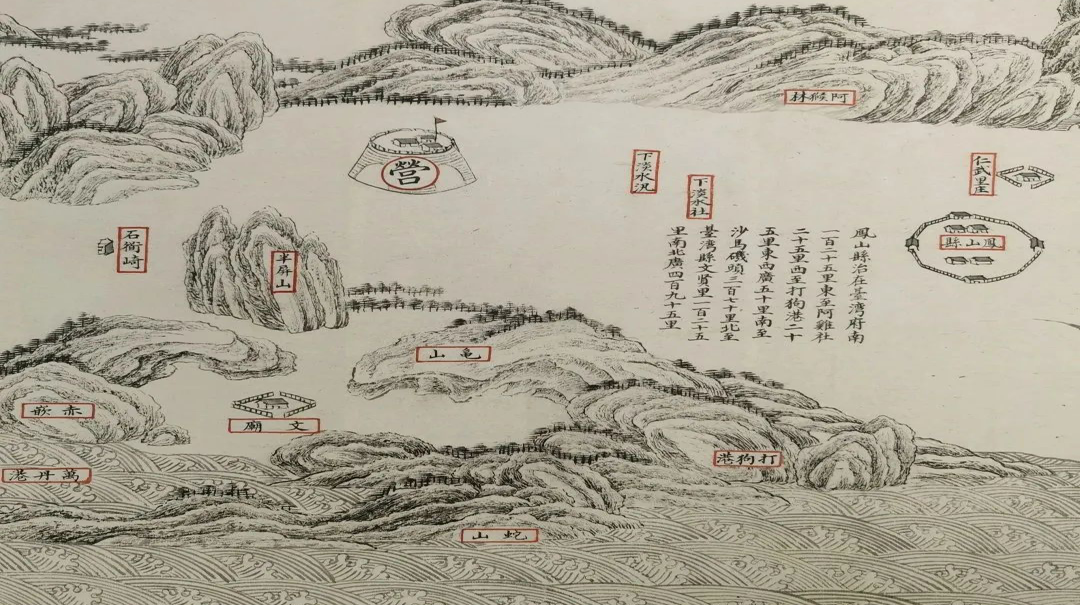 阿猴林
仁武里庄
鳳山縣
鳳山縣治在臺灣府南
一百二十五里東至阿雞社
二十五里西至打狗港二十
五里東西廣五十里南至
沙馬磯頭三百七十里北至
臺灣縣文賢里一百二十五
里南北廣四百九十五里
下淡水社
下淡水汛
營
半屏山
石衕崎
亀山
打狗港
文廟
赤嵌
萬丹港
蛇山